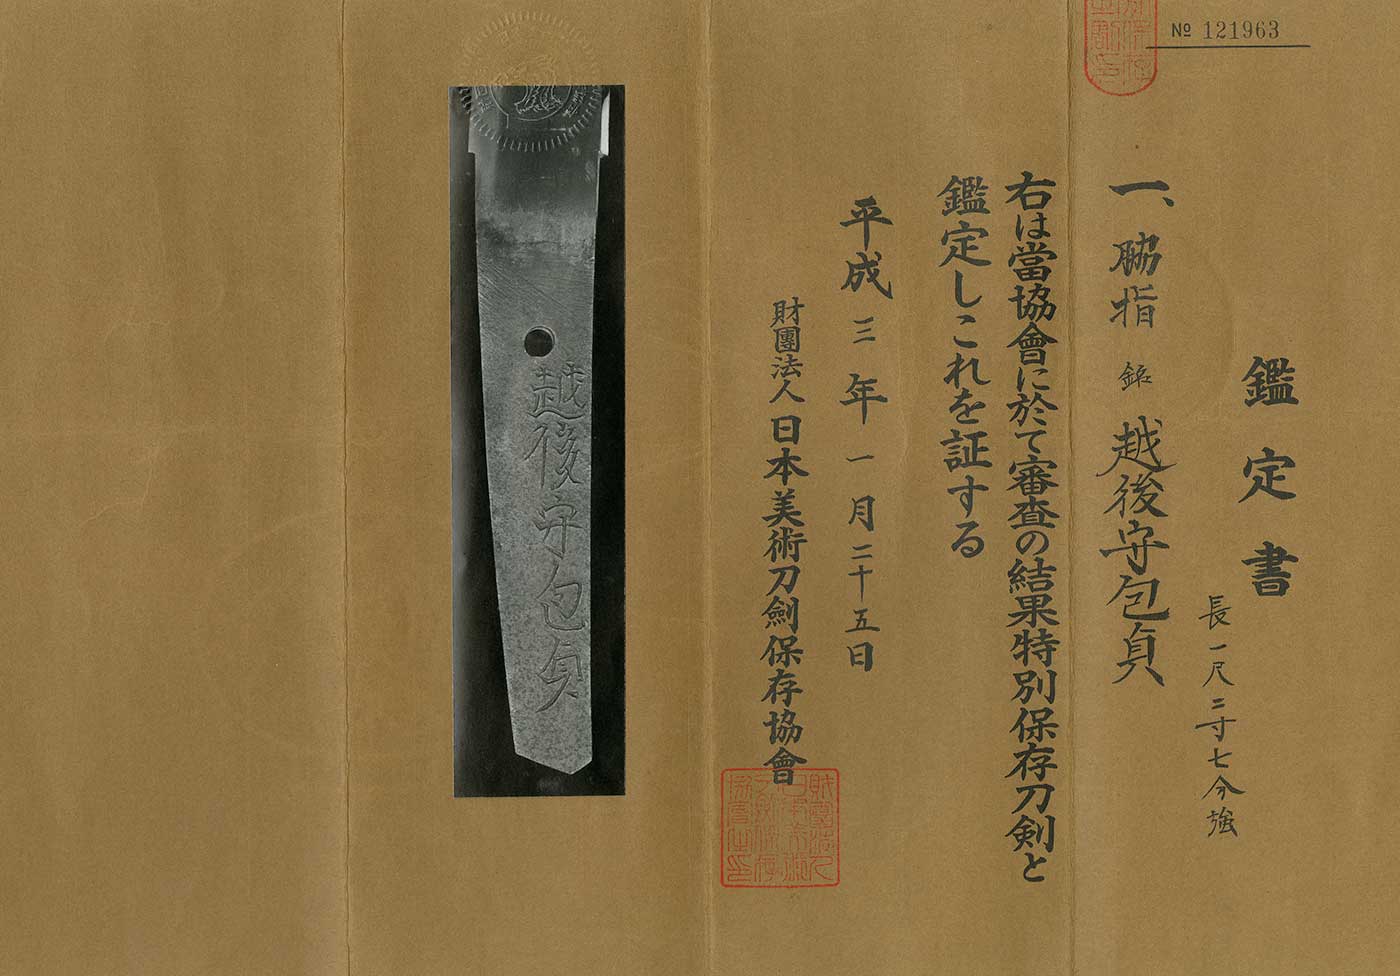 № 121963
鑑定書
長一尺二寸七分強
一、脇指 銘 越後守包貞
右は當協會に於て審査の結果特別保存刀剣と
鑑定しこれを証する
平成三年一月二十五日
財團法人日本美術刀劍保存協會
越後守包貞